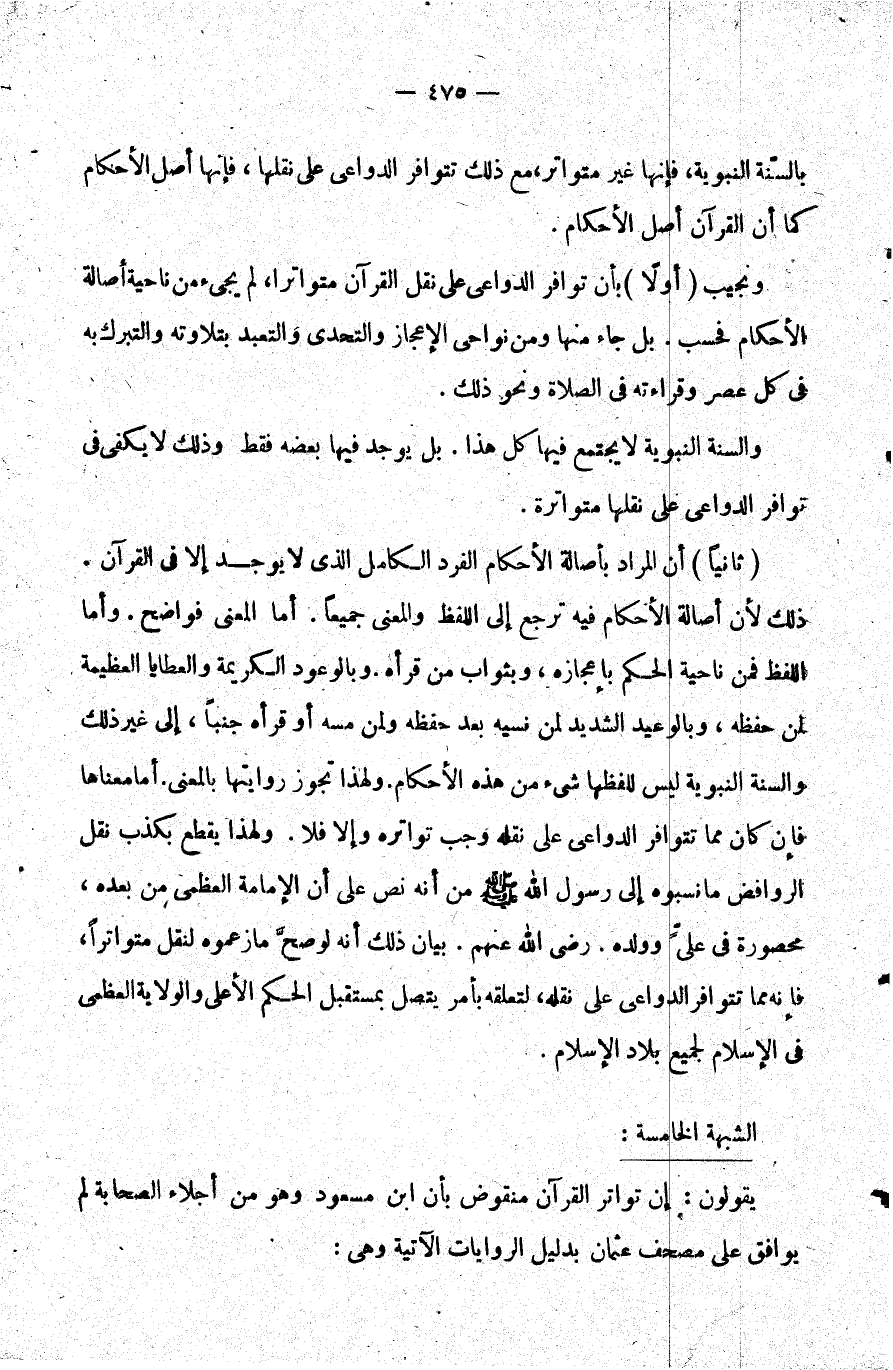 — ٤٧٥ —
بالسنّة النبوية، فإنها غير متواتر،مع ذلك تتوافر الدواعى على نقلها ، فإنها أصل الأحكام
كما أن القرآن أصل الأحكام .
ونجيب ( أولًا ) بأن توافر الدواعى على نقل القرآن متواترا، لم يجىء من ناحية أصالة
الأحكام فحسب . بل جاء منها ومن نواحى الإعجاز والتحدى والتعبد بتلاوته والتبرك به
فى كل عصر وقراءته فى الصلاة ونحو ذلك .
والسنة النبوية لا يجتمع فيها كل هذا . بل يوجد فيها بعضه فقط وذلك لا يكفى فى
توافر الدواعى على نقلها متواترة .
( ثانياً ) أن المراد بأصالة الأحكام الفرد الـكامل الذى لا يوجـد إلا فى القرآن .
ذلك لأن أصالة الأحكام فيه ترجع إلى اللفظ والمعنى جميعاً . أما المعنى فواضح . وأما
اللفظ فمن ناحية الحـكم بإعجازه ، وبثواب من قرأه .وبالوعود الـكريمة والعطايا العظيمة
لمن حفظه ، وبالوعيد الشديد لمن نسيه بعد حفظه ولمن مسه أو قرأه جنباً ، إلى غير ذلك
والسنة النبوية ليس للفظها شىء من هذه الأحكام.ولهذا تجوز روايتها بالمعنى.أما معناها
فإن كان مما تتوافر الدواعى على نقله وجب تواتره وإلا فلا . ولهذا يقطع بكذب نقل
الروافض ما نسبوه إلى رسول الله ﷺ من أنه نص على أن الإمامة العظمى من بعده ،
محصورة فى علىّ وولده . رضى الله عنهم . بيان ذلك أنه لو صحَّ ما زعموه لنقل متواتراً،
فإنه مما تتوافر الدواعى على نقله، لتعلقه بأمر يتصل بمستقبل الحـكم الأعلى والولاية العظمى
فى الإسلام لجميع بلاد الإسلام .
الشبهة الخامسة :
يقولون : إن تواتر القرآن منقوض بأن ابن مسعود وهو من أجلاء الصحابة لم
يوافق على مصحف عثمان بدليل الروايات الآتية وهى :